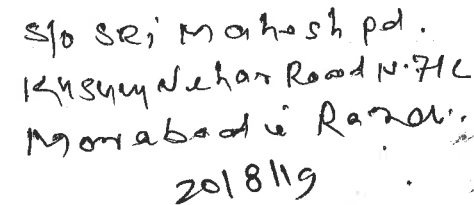 S/o SRi Mahesh pd.
Kusum Nehar Road N.71C
Morabadi Ranchi.
2018119